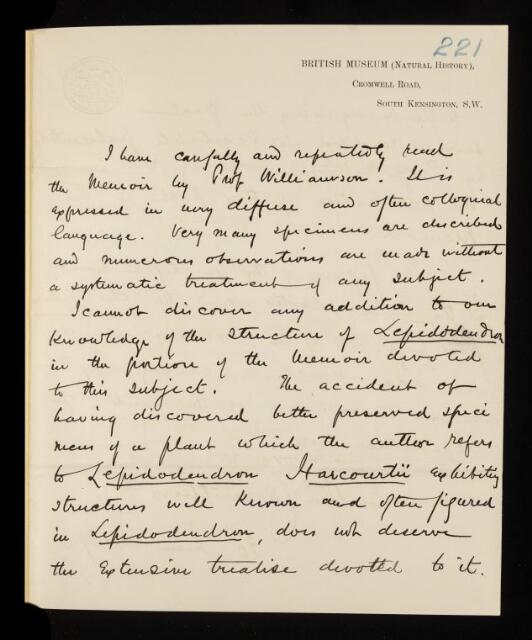 221
BRITISH MUSEUM (NATURAL HISTORY),
CROMWELL ROAD,
SOUTH KENSINGTON, S.W.
I have carefully and repeatedly read
the Memoir by Prof Williamson. It is
expressed in very diffuse and often colloquial
language. Very many specimens are described
and numerous observations are made without
a systematic treatment of any subject.
I cannot discover any addition to our
knowledge of the structure of Lepidodendron
in the portion of the Memoir devoted
to this subject. The accident of
having discovered better preserved speci
mens of a plant which the author refers
to Lepidodendron Harcourtii exhibiting
structures well known and often figured
in Lepidodendron, does not deserve
the extensive treatise devoted to it.